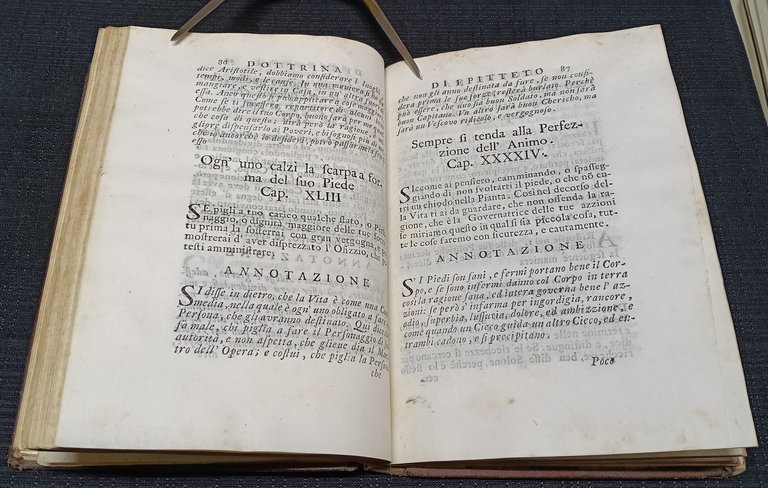 86 DOTTRINA
dice Aristotile, dobbiamo considerare i luoghi,
tempi, modi, e le cause. In una maniera si può
mangiare, e vestire in Casa, in un altra
essa. Anco questo si può applicare a cose
Come se ti facessero repartitore di
potrebbe dire il tuo Corpo, buono sarà per
che cosa di questo; dirà però la ragione,
gliore dispensarlo ai Poveri, e bisognosi più di
che io ancorchè lo desideri, potrò passarmela
esso
Ogn' uno calzi la scarpa a for-
ma del suo Piede
Cap. XLIII
SE pigli a tuo carico qualche stato, o Per-
sonaggio, o dignità maggiore delle tue forze
tu prima la sosterrai con gran vergogna, e
mostrerai d'aver disprezzato l'Ofizzio, che
testi amministrare;
ANNOTAZIONE
SI disse in dietro, che la Vita è come una Com-
media, nella quale è ogn' uno obligato a fare
Persona, che gli avranno destinato. Qui dice
fa male, chi piglia a fare il Personaggio di
autorità, e non aspetta, che gliene dia il Mae-
tro dell' Opera; e costui, che piglia la Persona
che
DI EPITTETO 87
che non gli anno destinata da fare, se non consi-
dera prima le sue forze, resterà burlato. Perchè
può essere, che uno sia buon Soldato, ma non sarà
buon Capitano. Un altro sarà buon Chericho, ma
sarà un Vescovo ridicolo, e vergognoso.
Sempre si tenda alla Perfez-
zione dell' Animo.
Cap. XXXXIV.
SIccome ai pensiero, camminando, o spasseg-
giando di non svoltarti il piede, o che nō en-
tri un chiodo nella Pianta. Così nel decorso del-
la Vita ti ai da guardare, che non offenda la ra-
gione, che è la Governatrice delle tue azzioni
se miriamo questo in qual si sia piccola cosa, tut-
te le cose faremo con sicurezza, e cautamente.
ANNOTAZIONE
SI Piedi son sani, e fermi portano bene il Cor-
po, e se sono infermi danno col Corpo in terra
così la ragione sana, ed intera governa bene l' az-
zioni: se però s'inferma per ingordigia, rancore,
odio, superbia, lussuria, dolore, ed ambizzione, e
come quando un Cieco guida un altro Cieco, ed en-
trambi cadono, e si precipitano.
Poco